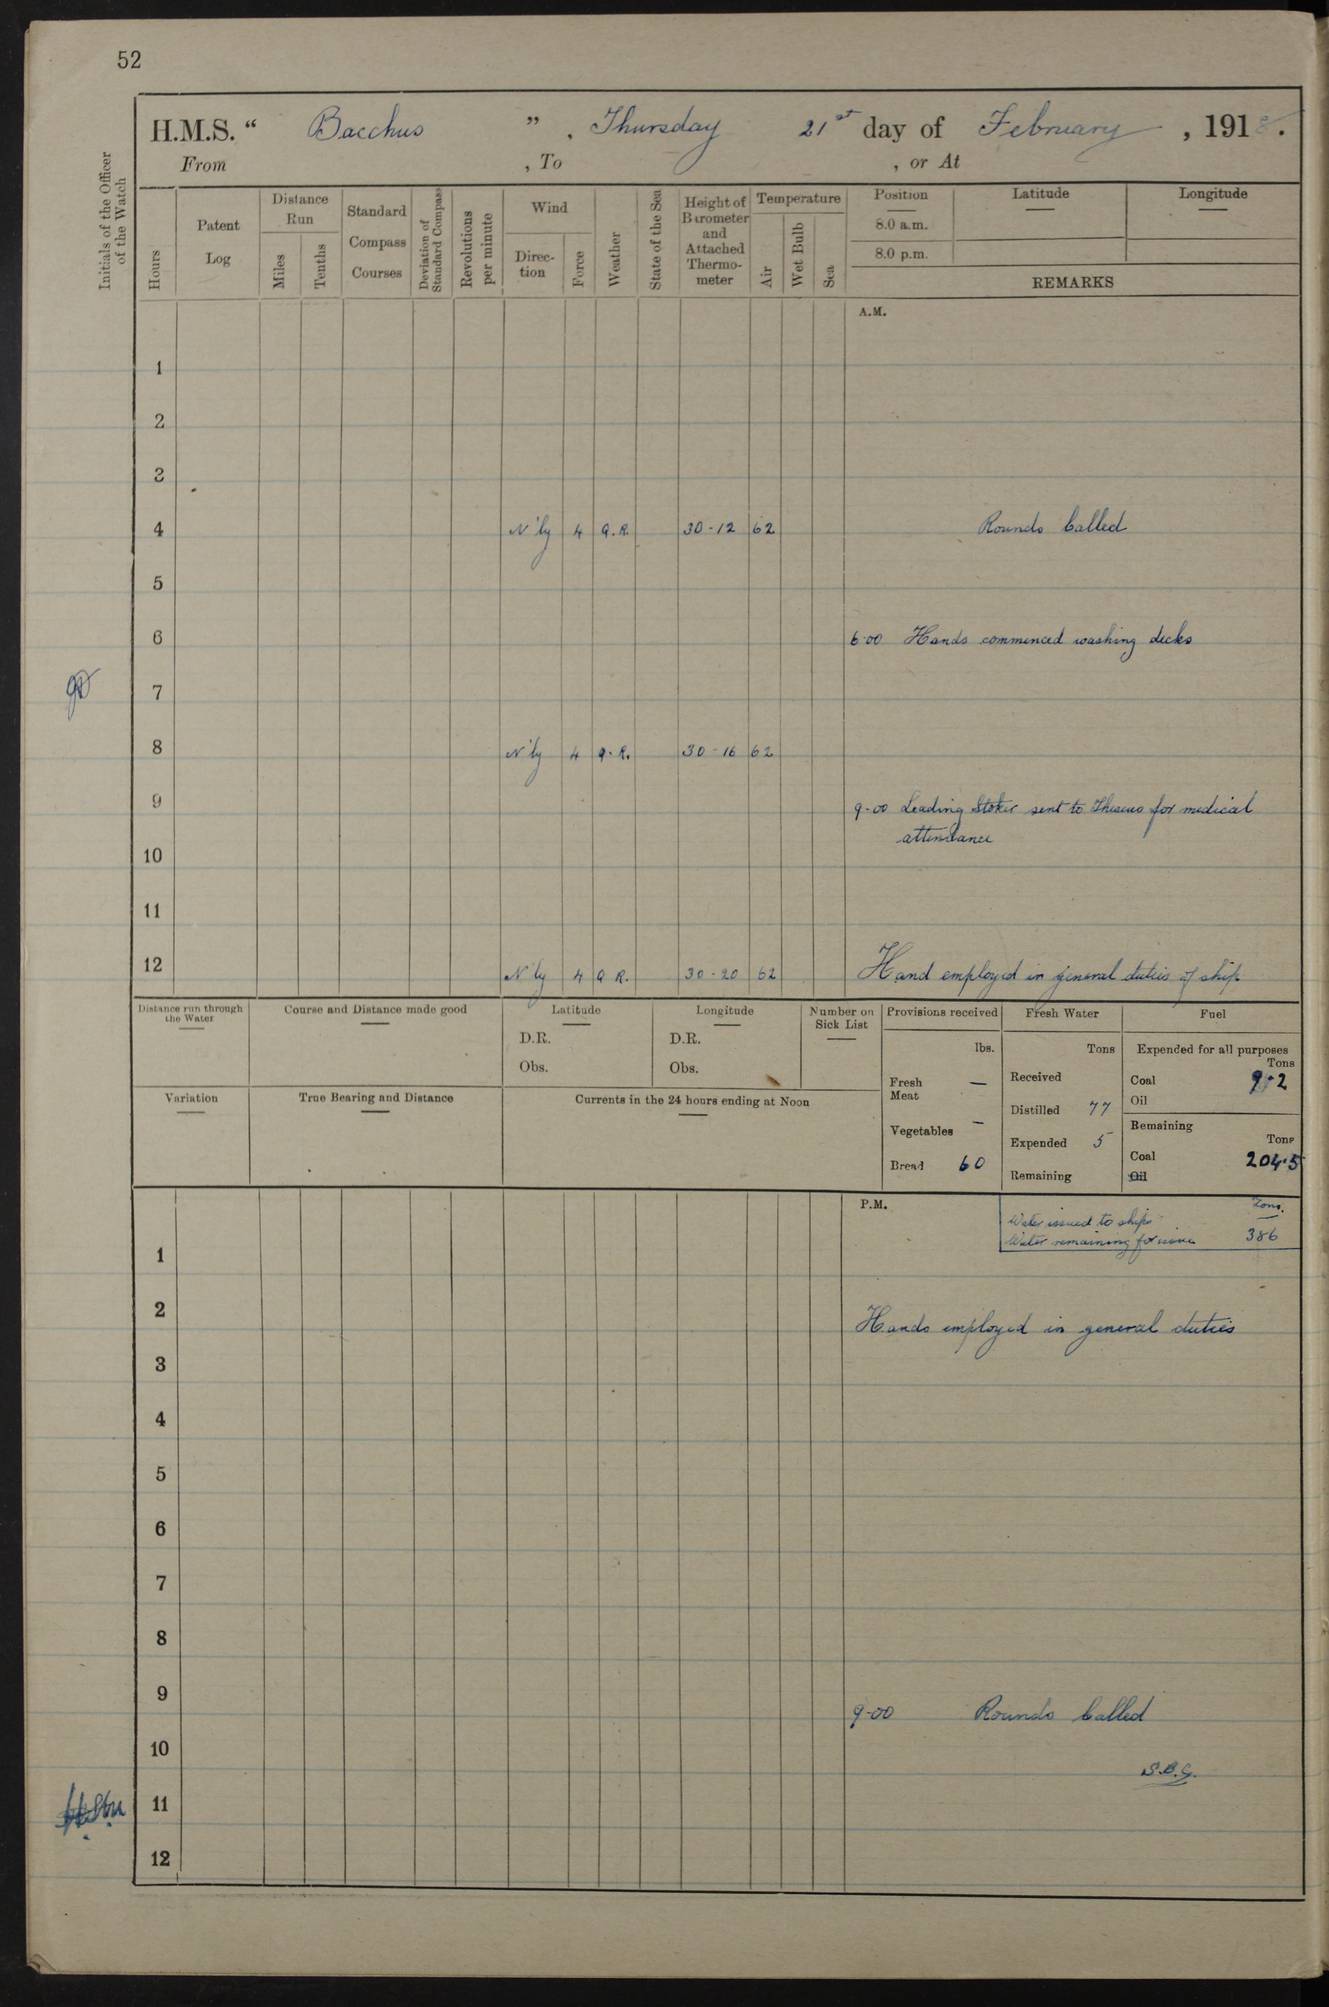 52
H.M.S. “ Bacchus ” , Thursday 21st day of February , 1918.
From , To , or At
Initials of the Officer of the Watch
Hours
Patent Log
Distance Run
Miles
Tenths
Standard Compass Courses
Deviation of Standard Compass
Revolutions per minute
Wind
Direction
Force
Weather
State of the Sea
Height of Barometer and Attached Thermometer
Temperature
Air
Wet Bulb
Sea
Position
8.0 a.m.
8.0 p.m.
Latitude
Longitude
REMARKS
A.M.
1
2
3
4 N'ly 4 Q.R. 30-12 62 Rounds Called
5
6 6.00 Hands commenced washing decks
7
8 N'ly 4 Q.R. 30-16 62
9 9-00 Leading Stoker sent to Theseus for medical
attendance
10
11
12 N'ly 4 Q R. 30-20 62 Hand employed in general duties of ship
Distance run through the Water
Course and Distance made good
Latitude
D.R.
Obs.
Longitude
D.R.
Obs.
Number on Sick List
Provisions received
lbs.
Fresh Meat —
Vegetables —
Bread 60
Fresh Water
Tons
Received
Distilled 77
Expended 5
Remaining
Fuel
Expended for all purposes
Tons
Coal 9.2
Oil
Remaining
Tons
Coal 204.5
Oil
Variation
True Bearing and Distance
Currents in the 24 hours ending at Noon
P.M.
Tons.
Water issued to ships
Water remaining for issue 386
1
2 Hands employed in general duties
3
4
5
6
7
8
9 9-00 Rounds Called
10
S.B.G.
11
12